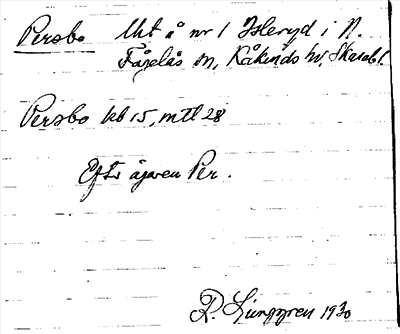 Persbo Utt å nr 1 Isleryd i N.
Fågelås sn, Kåkinds hd, Skarab l.
Persbo kb 15, mtl 28
Efter ägaren Per.
P. Ljunggren 1930